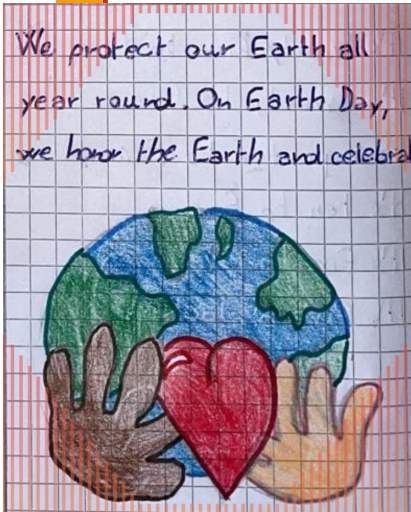 We protect our Earth all
year round. On Earth Day,
we honor the Earth and celebra